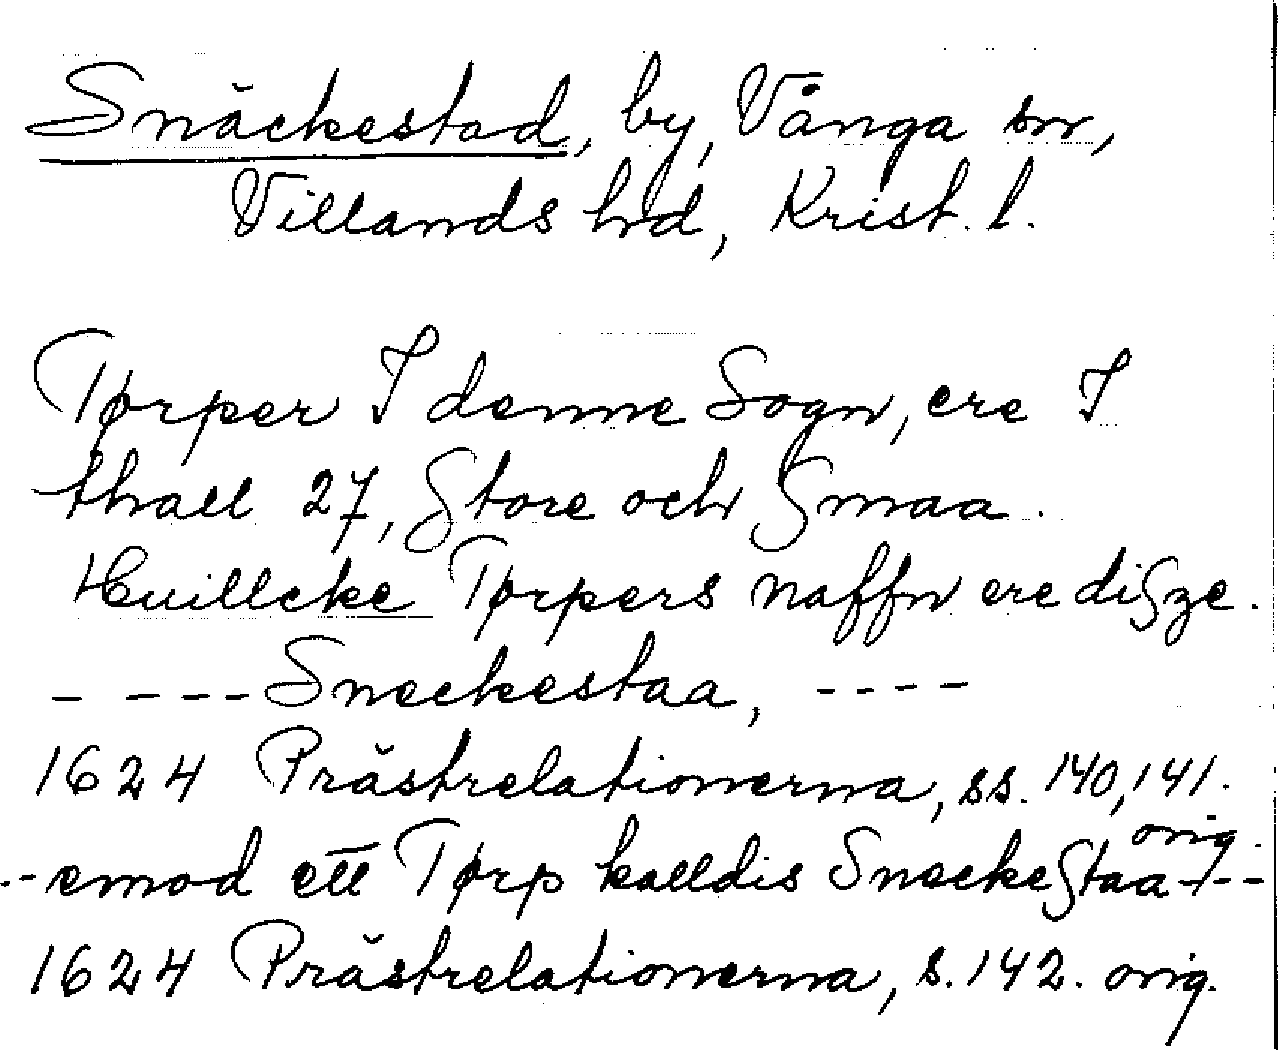 Snäckestad, by, Vånga sn,
Villands hd, Krist. l.
Tørper I denne Sogn, ere I
thall 27, Store och Smaa.
Huillcke Tørpers naffn ere disze.
- - - - Sneckestaa, - - - -
1624 Prästrelationerna, ss. 140, 141. orig.
-- emod ett Tørp kalldis Sneckestaa - - -
1624 Prästrelationerna, s. 142. orig.